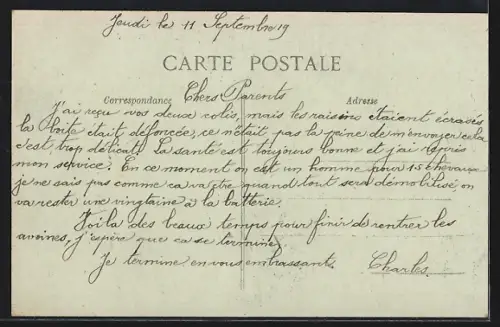 Jeudi le 11 Septembre 19
CARTE POSTALE
Correspondance Chers Parents Adresse
J'ai reçu vos deux colis, mais les raisins étaient écrasés
la boîte était défoncée, ce n'était pas la peine de m'envoyer cela
c'est trop délicat. La santé est toujours bonne et j'ai repris
mon service. En ce moment on est un homme pour 15 chevaux
je ne sais pas comme ca va être quand tout sera démobilisé, on
va rester une vingtaine à la batterie.
Voila des beaux temps pour finir de rentrer les
avoines, j'espère que ca se termine.
Je termine en vous embrassant. Charles.